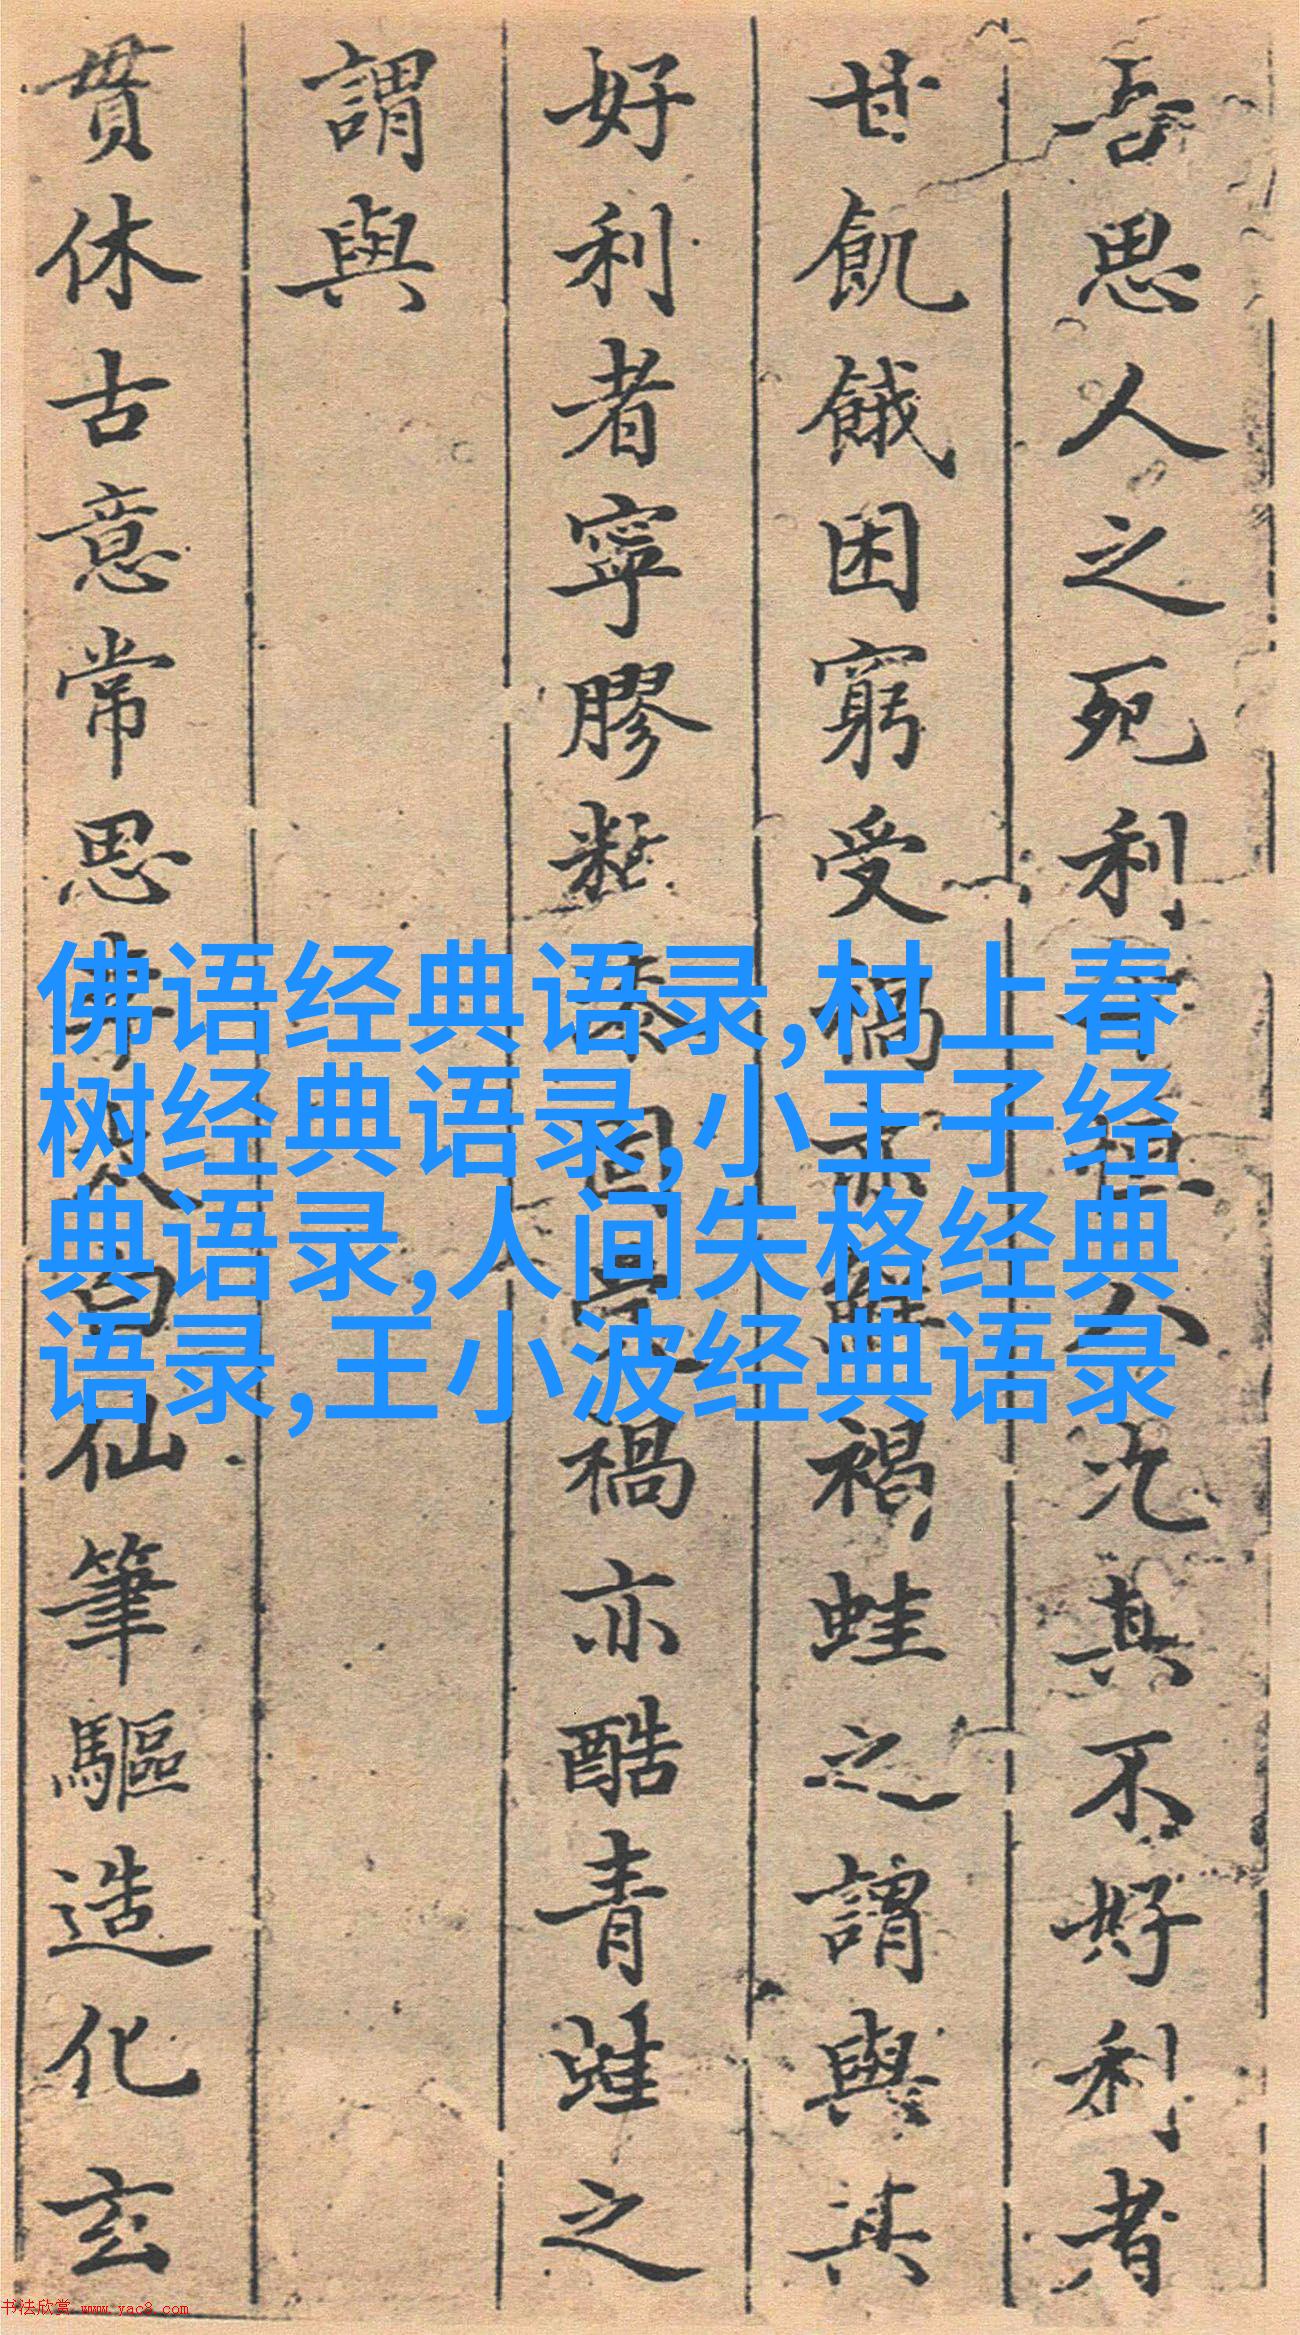 吾思人之死利十恒八九其不好利者
甘飢餓困窮受禍亦鮮褐蛙之謂與其
好利者寧膠黏漆固禍亦酷青蛙之
謂與
貫休古意常思李太白仙筆驅造化玄
佛语经典语录,村上春
树经典语录,小王子经
典语录,人间失格经典
语录,王小波经典语录
书法欣赏 www.yac8.com